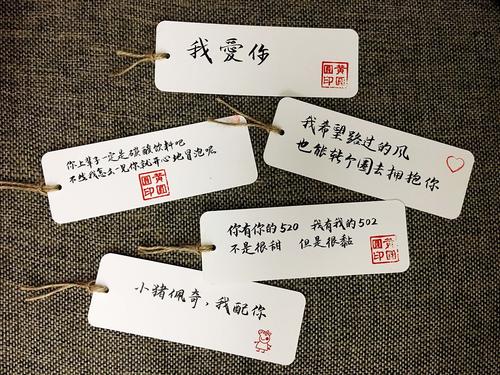 我愛你
我希望路过的风
也能转个圈去拥抱你
你上辈子一定是碳酸饮料吧
不然我怎么一见你就开心地冒泡呢
你有你的520 我有我的502
不是很甜 但是很黏
小猪佩奇，我配你